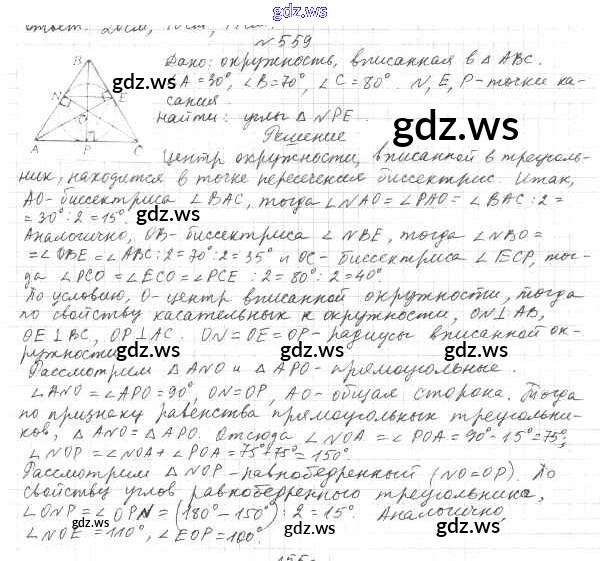 gdz.ws
ответ: 20см, 10см,
№559
Дано: окружность, вписанная в △ ABC.
∠A = 30°, ∠B = 70°, ∠C = 80°. N, E, P - точки ка-
сания
Найти: углы △ NPE.
Решение
Центр окружности, вписанной в треуголь-
ник, находится в точке пересечения биссектрис. Итак,
AO - биссектриса ∠BAC, тогда ∠NAO = ∠PAO = ∠BAC : 2 =
= 30° : 2 = 15°.
Аналогично, OB - биссектриса ∠NBE, тогда ∠NBO =
= ∠OBE = ∠ABC : 2 = 70° : 2 = 35° и OC - биссектриса ∠ECP, тог-
да ∠PCO = ∠ECO = ∠PCE : 2 = 80° : 2 = 40°
По условию, O - центр вписанной окружности, тогда
по свойству касательных к окружности, ON⊥AB,
OE⊥BC, OP⊥AC. ON = OE = OP - радиусы вписанной ок-
ружности
Рассмотрим △ANO и △APO - прямоугольные.
∠ANO = ∠APO = 90°, ON = OP, AO - общая сторона. Тогда
по признаку равенства прямоугольных треугольни-
ков, △ANO = △APO. Отсюда ∠NOA = ∠POA = 90° - 15° = 75°,
∠NOP = ∠NOA + ∠POA = 75° + 75° = 150°.
Рассмотрим △NOP - равнобедренный (NO = OP). По
свойству углов равнобедренного треугольника,
∠ONP = ∠OPN = (180° - 150°) : 2 = 15°. Аналогично,
∠NOE = 110°, ∠EOP = 100°.
B
N
E
O
A
P
C
gdz.ws
gdz.ws
gdz.ws
gdz.ws
gdz.ws
gdz.ws
gdz.ws
gdz.ws
gdz.ws